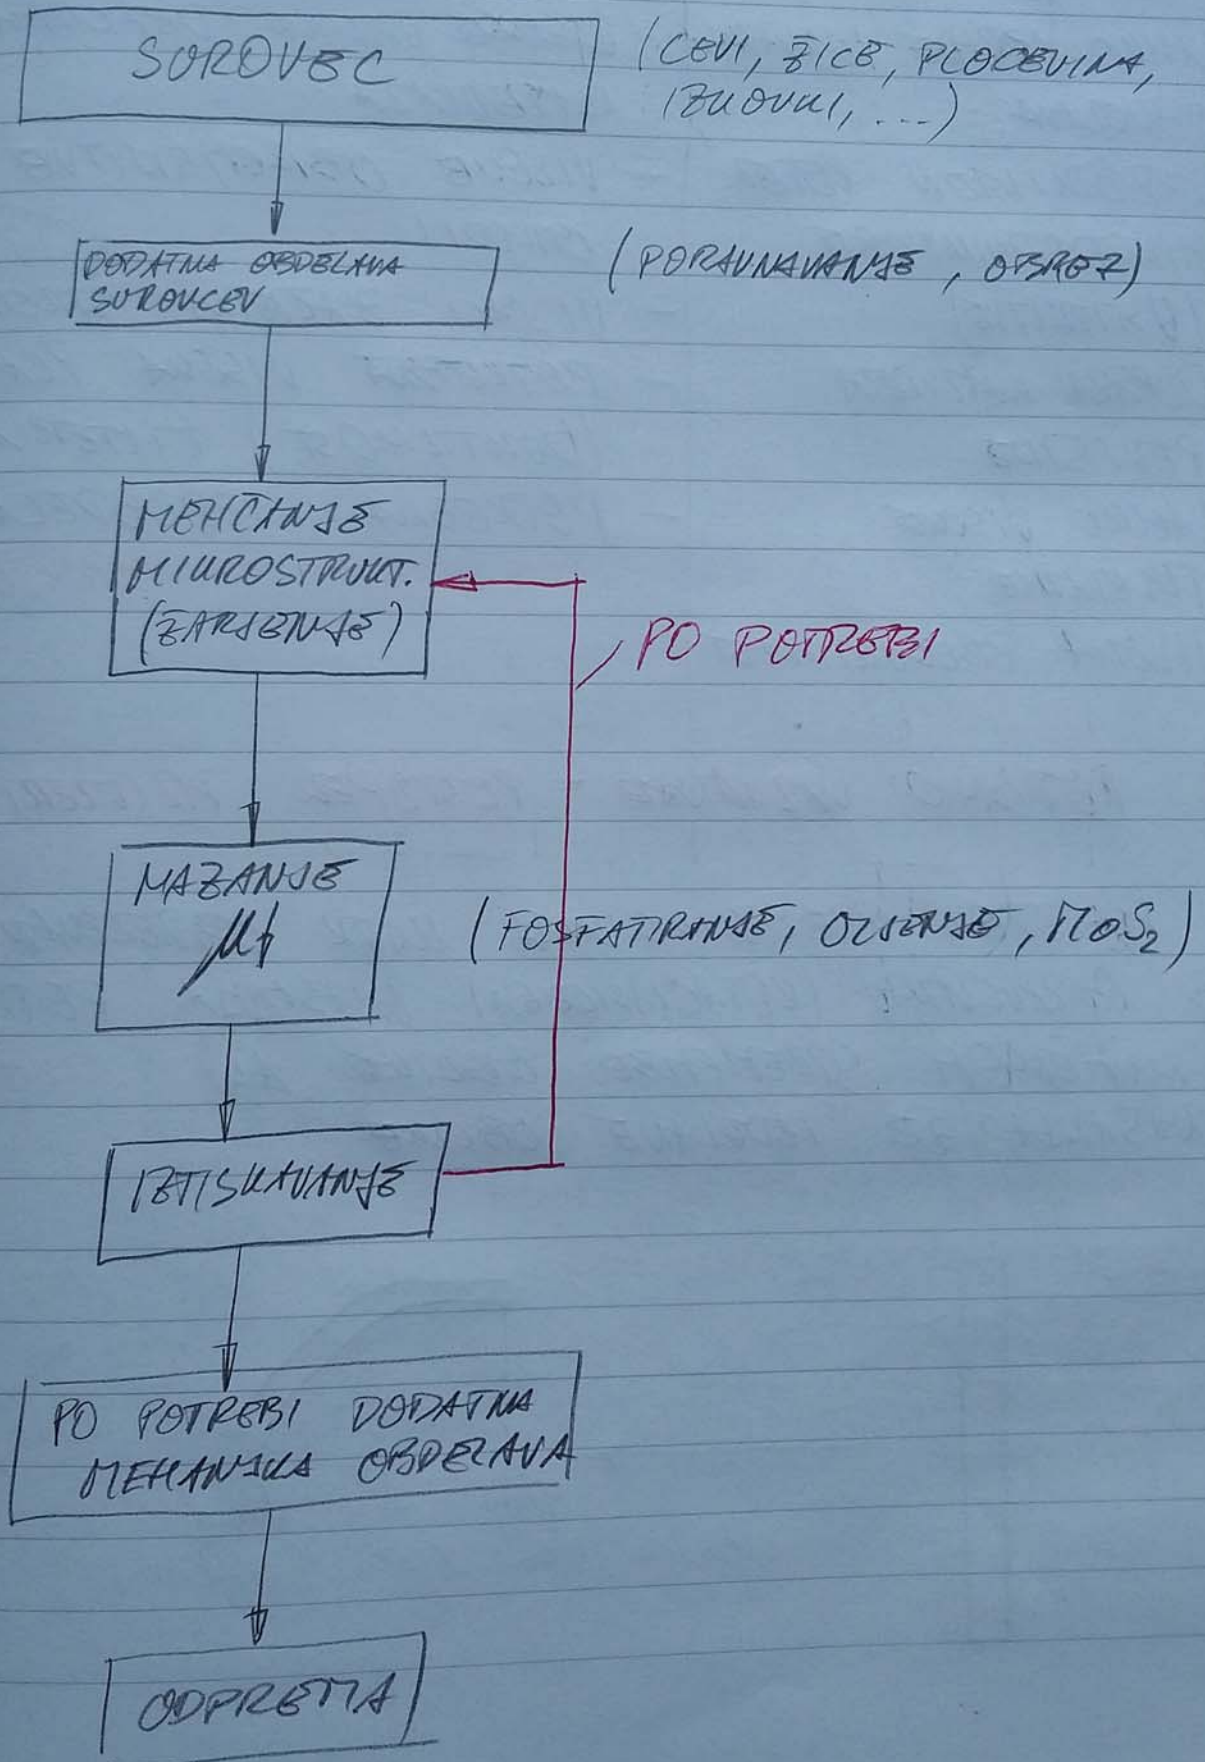 SUROVEC
(CEVI, ŽICE, PLOČEVINA,
IZKOVKI, ...)
DODATNA OBDELAVA
SUROVCEV
(PORAVNAVANJE, OBREZ)
MEHČANJE
MIKROSTRUKT.
(ŽARJENJE)
PO POTREBI
MAZANJE
μ↓
(FOSFATIRANJE, OLJENJE, MoS₂)
IZTISKAVANJE
PO POTREBI DODATNA
MEHANSKA OBDELAVA
ODPREMA